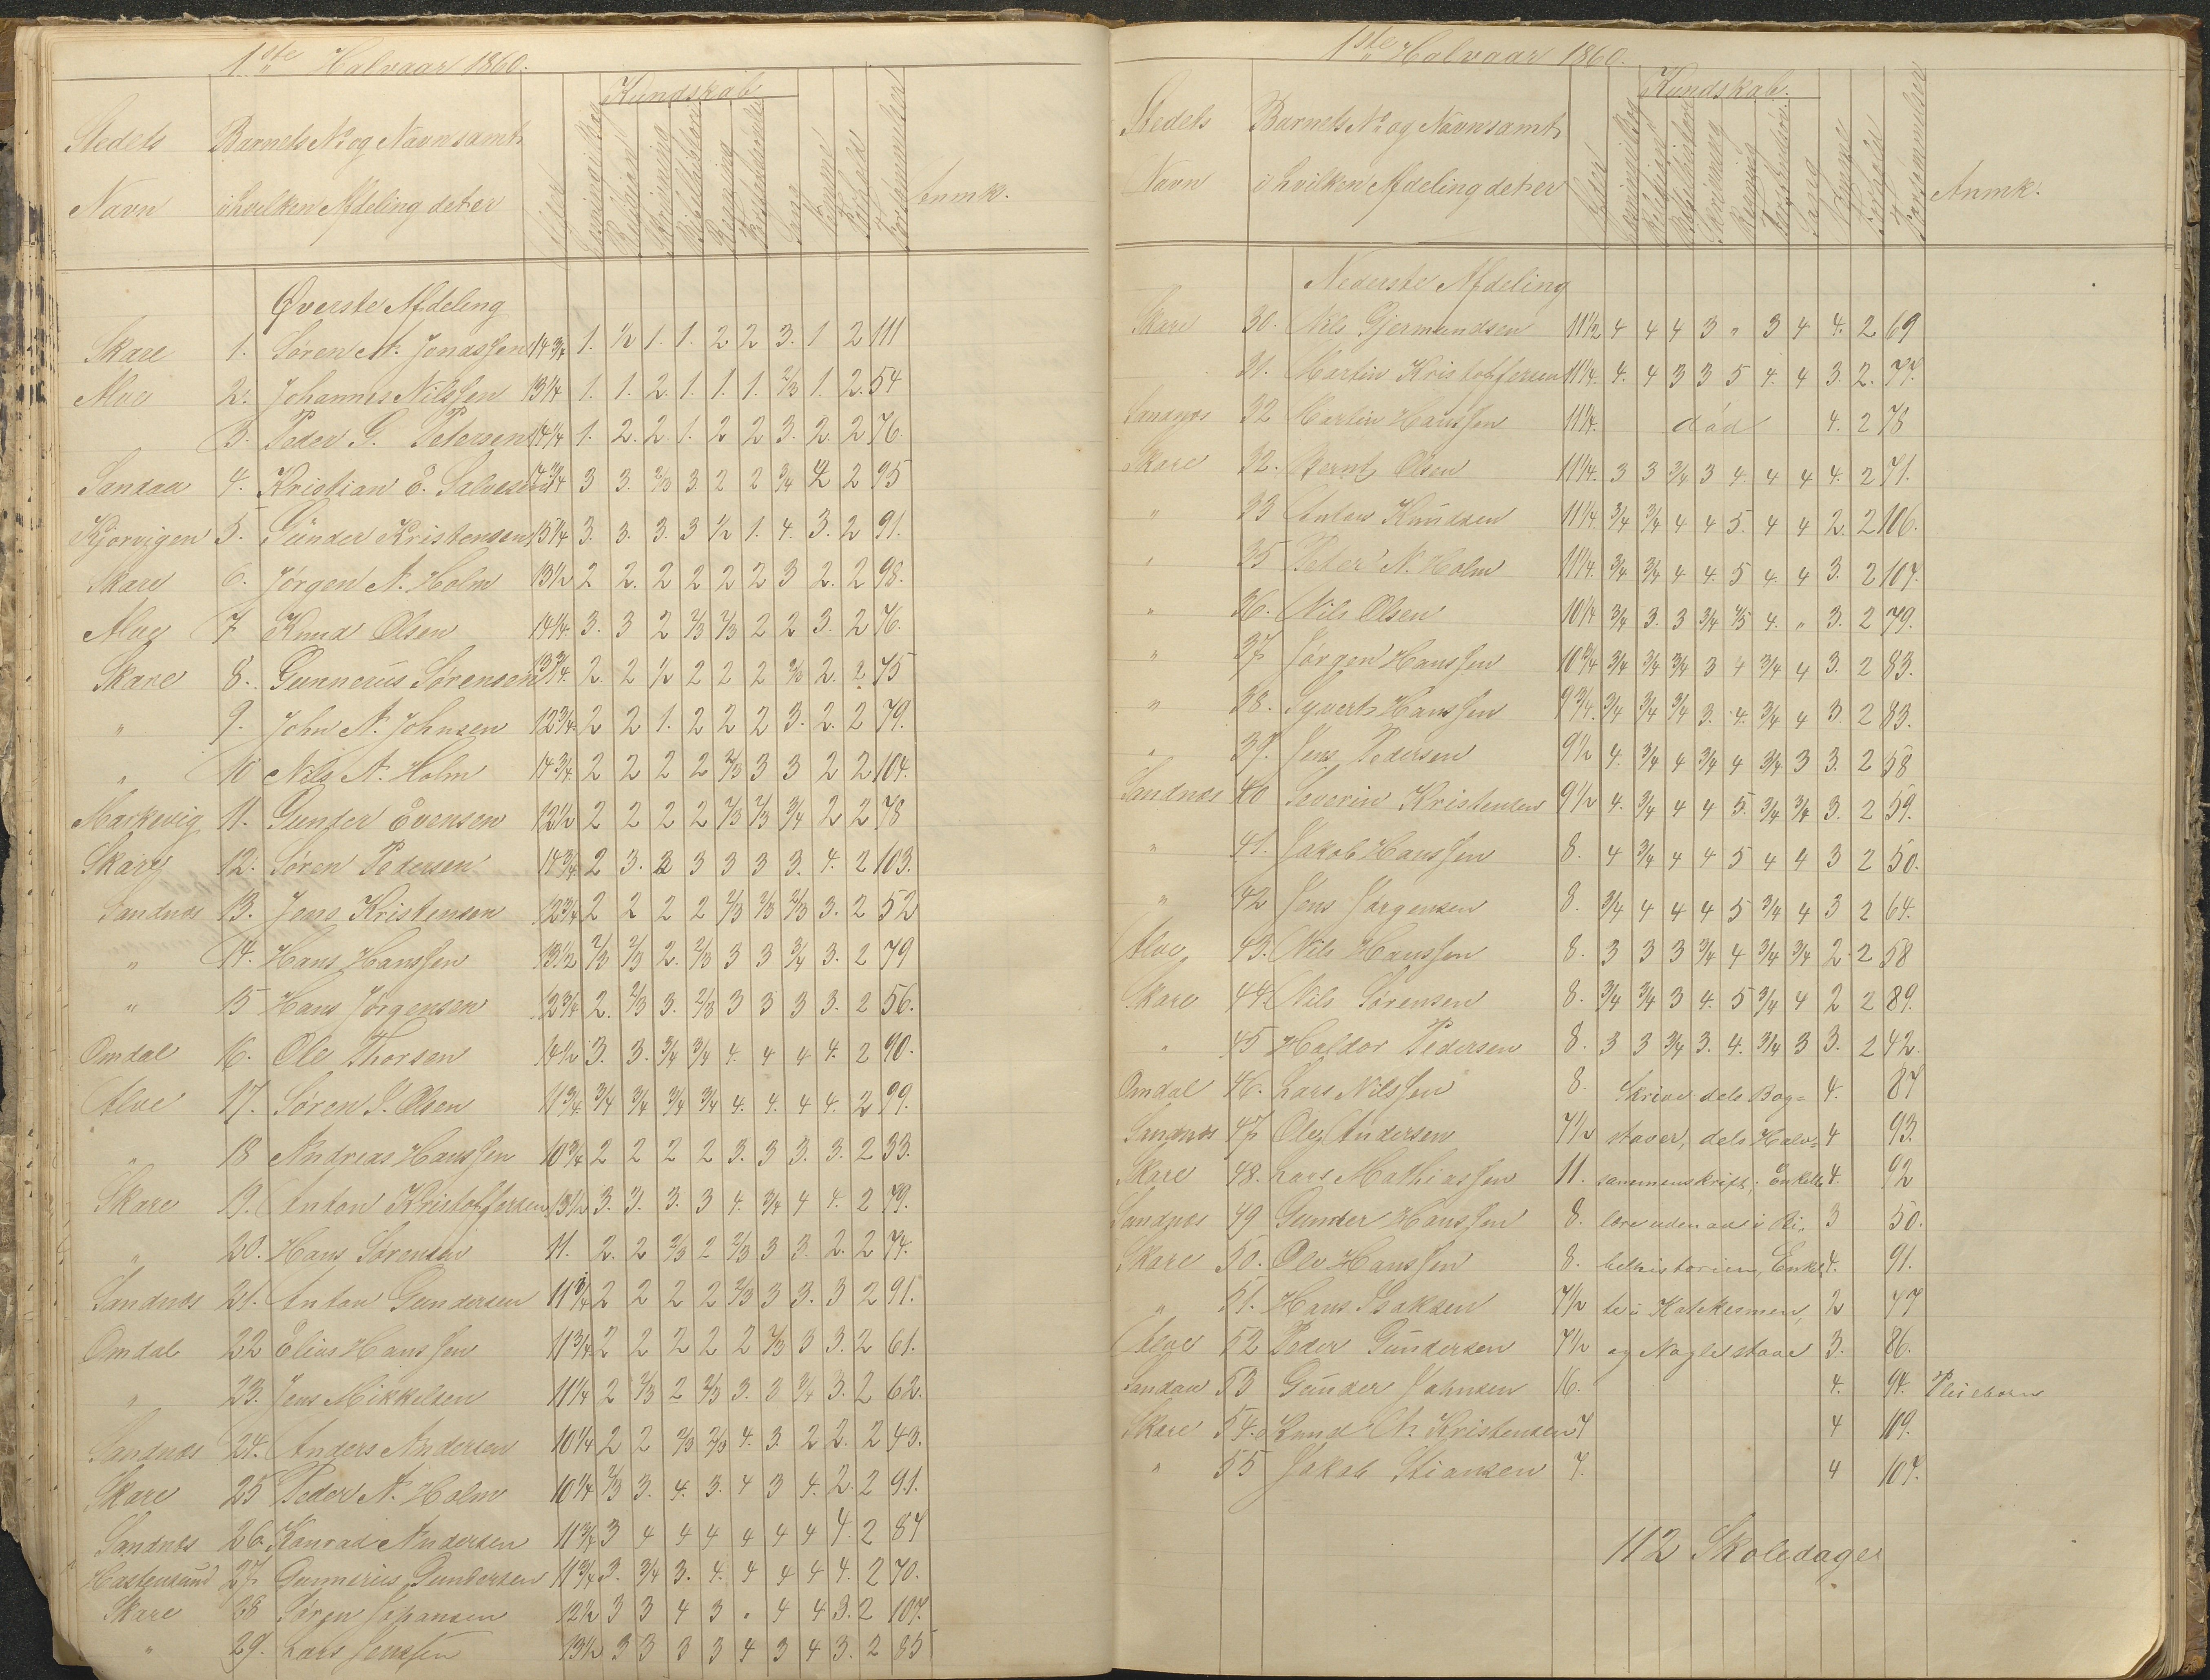 1ste Halvaar 1860.
Stedets Navn
Barnets No og Navn samt i hvilken Afdeling det er
Alder
Kundskab
Læsning i Bog
Religion
Skrivning
Bibelhistorie
Regning
Sang
Evne
Forhold
Forsømmelser
Anmk.
Øverste Afdeling
Skare 1. Søren A. Jonassen 14 3/4 1. 1/2 1. 1. 2 2 3. 1 2 111
Alve 2. Johannes Nilssen 13 1/4 1. 1. 2. 1. 1. 1. 2/3 1. 2. 54
3. Peder G. Petersen 14 1/4 1. 2. 2. 1. 2 2 3. 2. 2 76.
Sandaa 4. Kristian E. Salvesen 3 3. 2/3 3. 2 2 3/4 2 2 95
Kjørvigen 5. Günder Kristensen 13 1/4 3. 3. 3. 3 1/2 1. 4. 3. 2 91.
Skare 6. Jørgen A. Holm 13 1/2 2 2. 2 2 2 2 3 2. 2 98.
Alve 7 Knud Olsen 14 1/4 3. 3 2 2/3 2/3 2 2 3. 2 76.
Skare 8. Gunnerus Sørensen 13 3/4 2. 2 1/2 2 2 2 2/3 2. 2 75
" 9. John A. Johnsen 12 3/4 2 2 1. 2 2 2 3. 2. 2 79.
" 10 Nils A. Holm 14 3/4 2 2 2 2 2/3 3 3 2 2 104.
Markevig 11. Gunder Evensen 12 1/2 2 2 2 2 2/3 2/3 3/4 2 2 78
Skare 12. Søren Pedersen 14 3/4 2 3. 2 3 3 3 3. 4. 2 103.
Sandnæs 13. Jens Kristensen 12 3/4 2 2 2 2 2/3 2/3 2/3 3. 2 52
" 14. Hans Hanssen 13 1/2 2/3 2/3 2. 2/3 3 3 3/4 3. 2 79
" 15 Hans Jørgensen 12 3/4 2. 2/3 3. 2/3 3 3 3 3. 2 56.
Omdal 16. Ole Thorsen 14 1/2 3. 3. 3/4 3/4 4. 4 4 4. 2 90.
Alve 17. Søren S. Olsen 11 3/4 3/4 3/4 3/4 3/4 4. 4. 4 4. 2 99.
" 18 Andreas Hanssen 10 3/4 2 2 2 2 3. 3 3. 3. 2 33.
Skare 19. Anton Kristoffersen 13 1/2 3. 3. 3. 3 4. 3/4 4 4. 2 79.
" 20. Hans Sørensen 11. 2. 2 2/3 2 2/3 3 3. 2. 2 74.
Sandnæs 21. Anton Gundersen 11 3/4 2 2 2 2 2/3 3 3. 3 2 91.
Omdal 22 Elias Hanssen 11 3/4 2 2 2 2 2 2/3 3 3. 2 61.
" 23. Jens Mikkelsen 11 1/4 2 2/3 2 2/3 3. 3 3/4 3. 2 62.
Sandnæs 24. Anders Andersen 10 1/4 2 2 2/3 2/3 4. 3. 2 2. 2 43.
Skare 25 Peder A. Holm 10 1/4 2/3 3. 4. 3. 4 3 4. 2. 2 91.
Sandnæs 26. Konrad Andersen 11 3/4 3 4 4 4 4 4 4 4. 2 87
27. Gunnerius Gundersen 11 3/4 3. 3/4 3. 4. 4 4 4 4. 2 70.
Skare 28 Søren Johansen 12 1/2 3 3 4 3 " 4 4 3. 2 107.
" 29. Lars Jenssen 13 1/2 3 3 3 3 4 3 4 3. 2 85
1ste Halvaar 1860.
Stedets Navn
Barnets No og Navn samt i hvilken Afdeling det er
Alder
Kundskab.
Læsning i Bog
Religion
Bibelhistorie
Skrivning
Regning
Sang
Evne
Forhold
Forsømmelser
Anmk.
Nederste Afdeling
Skare 30. Nils Gjermundsen 11 1/2 4 4 4 3 " 3 4 4. 2 69
31. Martin Kristoffersen 11 1/4. 4. 4 3 3 5 4. 4 3. 2. 77.
Sandnæs 32 Martin Hanssen 11 1/4. død 4. 2 78
Skare 32. Bernt Olsen 11 1/4. 3 3 3/4 3 4. 4 4 4. 2 71.
" 33 Anton Knudsen 11 1/4. 3/4 3/4 4 4 5. 4 4 2. 2 106.
" 35 Peter N. Holm 11 1/4. 3/4 3/4 4 4. 5 4. 4 3. 2 107.
" 36. Nils Olsen 10 1/4 3/4 3. 3 3/4 4/5 4. " 3. 2 79.
" 37 Jørgen Hanssen 10 3/4 3/4 3/4 3/4 3 4 3/4 4 3. 2 83.
" 38. Syvert Hanssen 9 3/4 3/4 3/4 3/4 3. 4. 3/4 4 3. 2 83.
" 39. Jens Pedersen 9 1/2 4. 3/4 4 3/4 4 3/4 3 3. 2 58
Sandnæs 40 Severin Kristensen 9 1/2 4. 3/4 4 4 5. 3/4 3/4 3. 2 59.
" 41. Jakob Hanssen 8. 4 3/4 4 4 5 4 4 3 2 50.
" 42 Jens Jørgensen 8. 3/4 4 4 4 5 3/4 4 3 2 64.
Alve 43. Nils Hanssen 8. 3 3 3 3/4 4 3/4 3/4 2. 2 58
Skare 44 Nils Sørensen 8. 3/4 3/4 3 4. 5 3/4 4 2 2 89.
" 45 Haldor Pedersen 8. 3 3 3/4 3. 4. 3/4 3 3. 2 42.
Omdal 46. Lars Nilssen 8. Skrive dels Bog= 4. 87
Sandnæs 47 Ole Andersen 7 1/2 staver, dels Halv= 4 93.
Skare 48. Lars Mathiassen 11. sammenskrift; Enkelte 4. 92
Sandnæs 49 Gunder Hanssen 8. lære uden ad i Bi= 3 50.
Skare 50. Ole Hanssen 8. belhistorien, Enkel 4. 91.
" 51. Hans Isaksen 7 1/2 te i Katekismen, 2 77
Alve 52 Peder Gündersen 7 1/2 og Nogle stave 3. 86.
Sandaa 53 Günder Johnsen 16. 4. 94. Pleiebarn
Skare 54. Knud Chr. Kristensen 7 4 119.
" 55 Jakob Stiansen 7. 4 107.
112 Skoledage